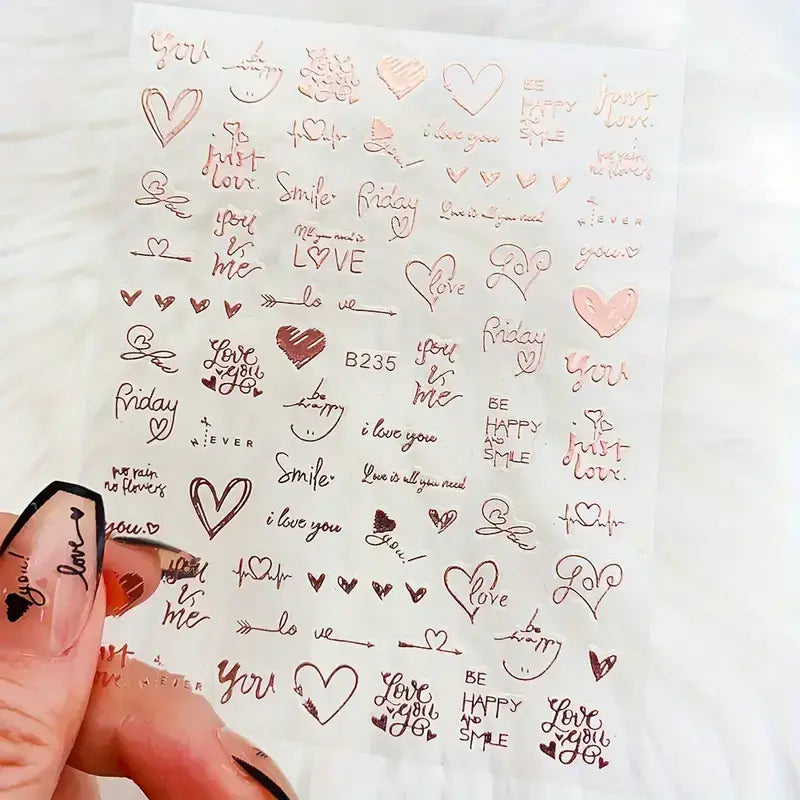 you
be
happy
Love
you
BE
HAPPY
AND
SMILE
just
love.
just
love.
you!
i love you
no rain
no flowers
you
&
me
Smile
friday
Love is all you need
NEVER
you.
All you need is
LOVE
love
Love
love
Love
you
B235
you
&
me
friday
you
friday
NEVER
be
happy
i love you
BE
HAPPY
AND
SMILE
just
love.
no rain
no flowers
Smile
Love is all you need
you.
i love you
you!
you!
love
you
&
me
love
Love
love
be
happy
just
love.
NEVER
you
Love
you
BE
HAPPY
AND
SMILE
Love
you